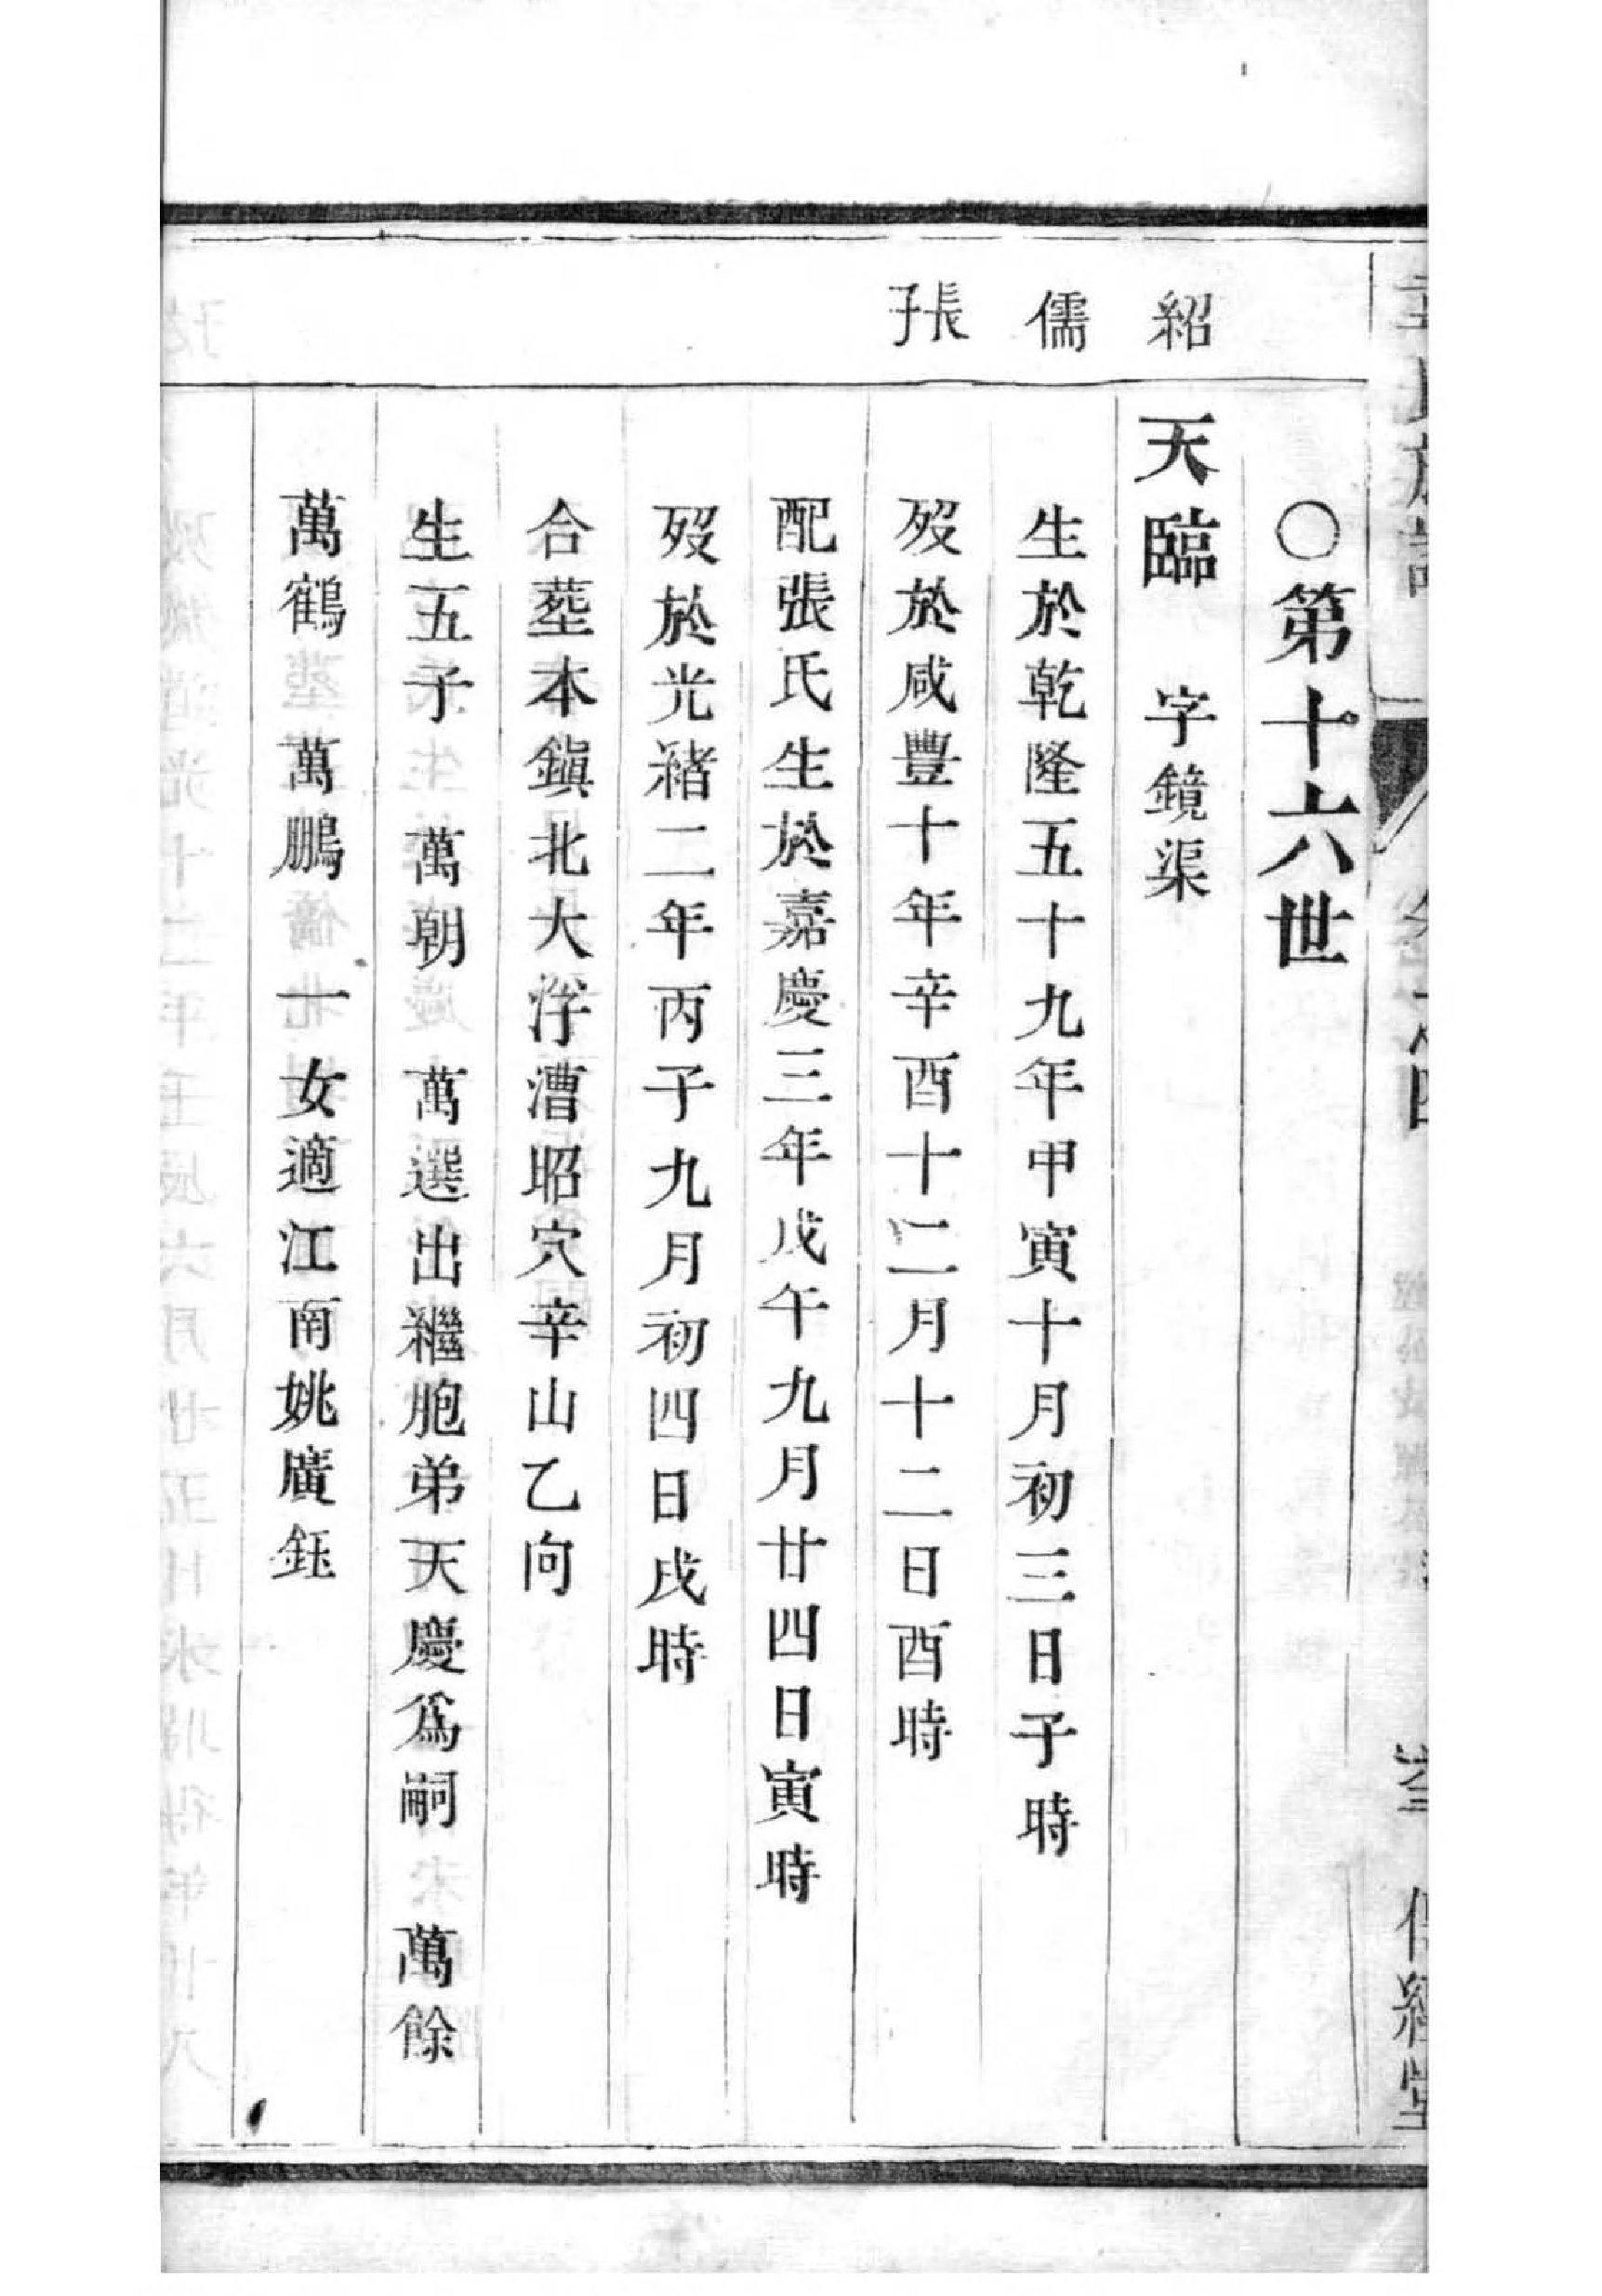 紹儒張子
○第十六世
天臨 字鏡渠
生於乾隆五十九年甲寅十月初三日子時
歿於咸豐十年辛酉十二月十二日酉時
配張氏生於嘉慶三年戊午九月廿四日寅時
歿於光緒二年丙子九月初四日戌時
合塟本鎭北大泘漕昭穴辛山乙向
生五子 萬朝 萬選出繼胞弟天慶爲嗣 萬餘
萬鶴 萬鵬 一女適江南姚廣鈺